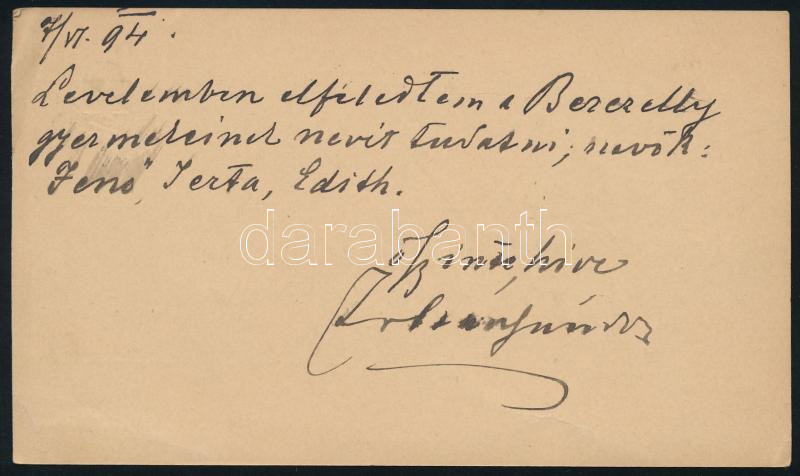 7/VI. 94.
Levelemben elfeledtem a Bezerédy
gyermekeinek nevét tudatni; nevök:
Jenő, Jerta, Edith.
darabanth
őszinte híve